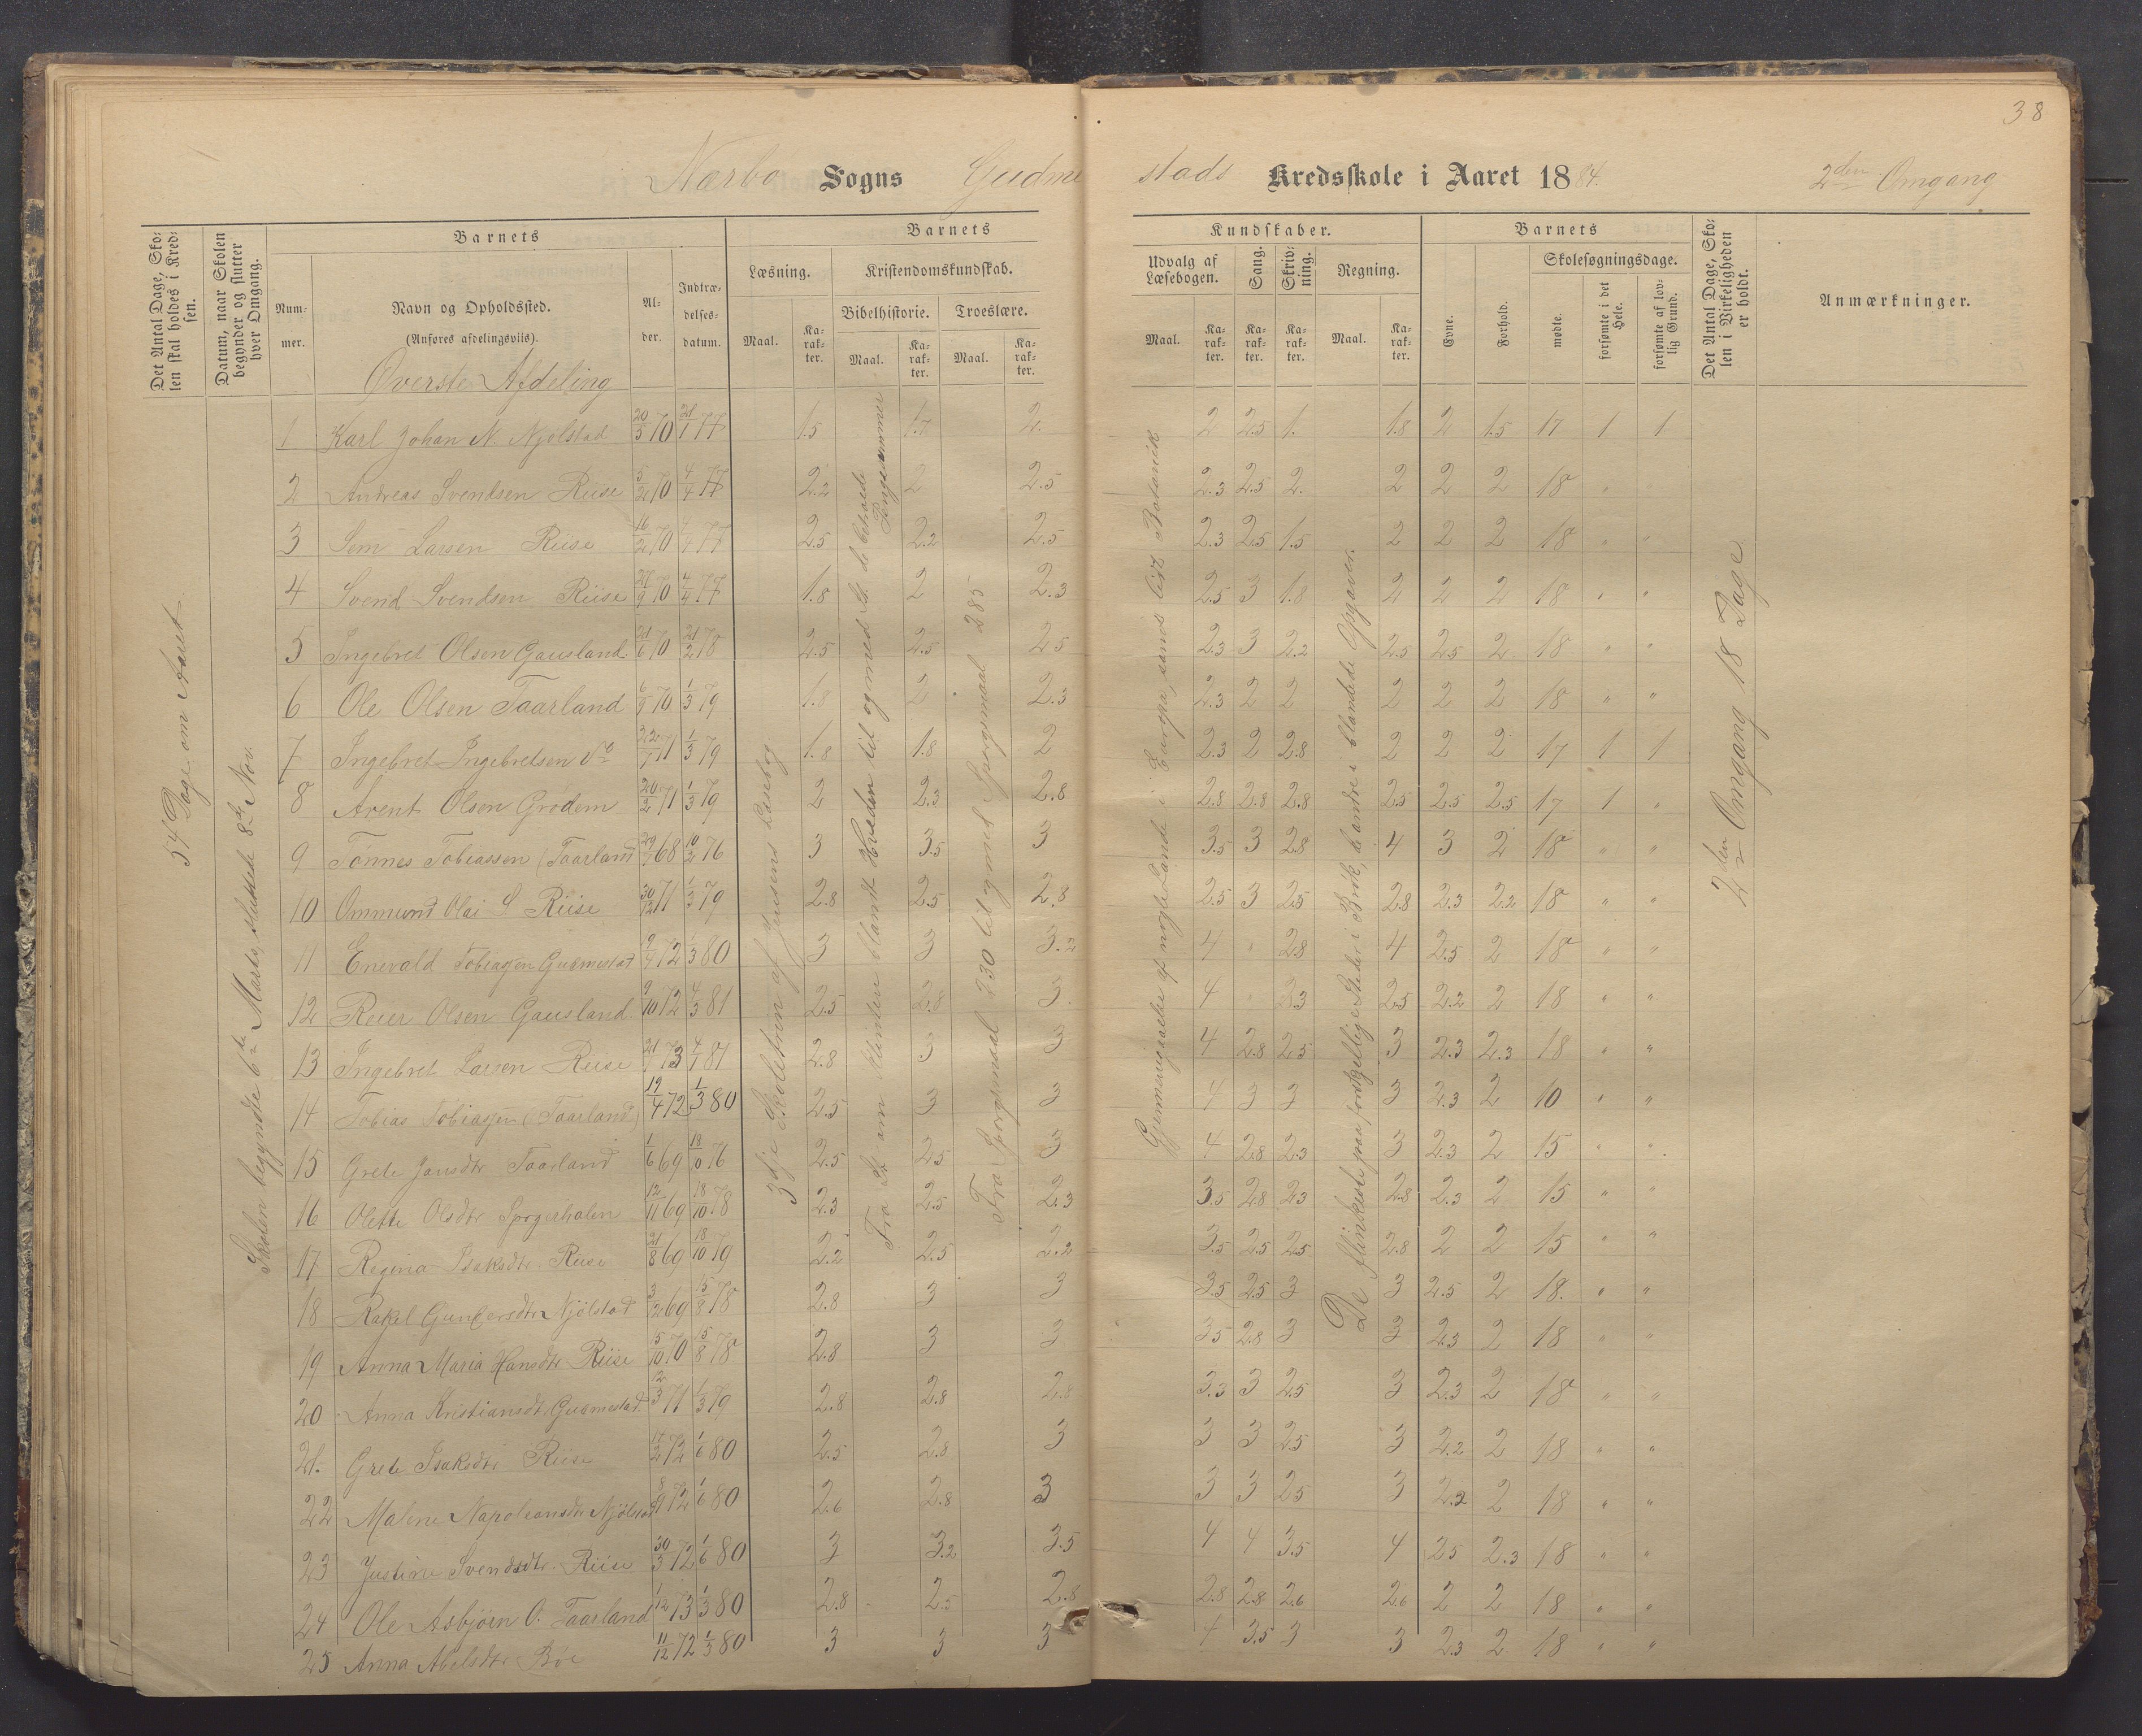 38
Nærbø Sogns Gudmestads Kredsskole i Aaret 1884. 2den Omgang
Det Antal Dage, Skolen skal holdes i Kredsen.
Datum, naar Skolen begynder og slutter hver Omgang.
Barnets
Nummer.
Navn og Opholdssted.
(Anføres afdelingsviis).
Alder.
Indtrædelsesdatum.
Barnets
Læsning.
Maal.
Karakter.
Kristendomskundskab.
Bibelhistorie.
Maal.
Karakter.
Troeslære.
Maal.
Karakter.
Kundskaber.
Udvalg af Læsebogen.
Maal.
Karakter.
Sang.
Karakter.
Skrivning.
Karakter.
Regning.
Maal.
Karakter.
Barnets
Evne.
Forhold.
Skolesøgningsdage.
mødte.
forsømte i det Hele.
forsømte af lovlig Grund.
Det Antal Dage, Skolen i Virkeligheden er holdt.
Anmærkninger.
Øverste Afdeling
54 Dage om Aaret.
Skolen begyndte 6te Marts, sluttede 8de Nov.
3dje Skoletrin af Jensens Læsebog
Spørgsmaal 230 til og med Spørgsmaal 285
Gjennemgaaelse af nogle Lande i Europa, samt lidt Botanik
De flinkeste paa forskjellige Steder i Brøk, de andre i blandede Opgaver.
2den Omgang 18 Dage
1 Karl Johan N. Njølstad 20/5 70 21/1 77 1.5 1.7 2. 2 2.5 1. 1.8 2 1.5 17 1 1
2 Andreas Svendsen Riise 70 4/4 77 2.2 2 2.5 2.3 2.5 2. 2 2 2 18 "
3 Sem Larsen Riise 70 4/4 77 2.5 2.2 2.5 2.3 2.5 1.5 2 2 2 18 " "
4 Svend Svendsen Riise 27/9 70 4/4 77 1.8 2 2.3 2.5 3 1.8 2 2 2 18 " "
5 Ingebret Olsen Gausland 21/6 70 21/2 78 2.5 2.5 2.5 2.3 3 2.2 2.5 2.5 2 18 " "
6 Ole Olsen Taarland 70 1/3 79 1.8 2 2.3 2.3 2 2 2 2 2 18 " "
7 Ingebret Ingebretsen do 71 1/3 79 1.8 1.8 2 2.3 2 2.8 2 2 2 17 1 1
8 Arent Olsen Grødem 20/2 71 1/3 79 2 2.3 2.8 2.8 2.8 2.8 2.5 2.5 2.5 17 1 "
9 Tønnes Tobiassen (Taarland 68 10/2 76 3 3.5 3 3.5 3 2.8 4 3 2 18 " "
10 Ommund Olai S Riise 30/12 71 1/3 79 2.8 2.5 2.8 2.5 3 2.5 2.8 2.3 2.2 18 " "
11 Enevald Tobiassen Gudmestad 72 1/3 80 3 3 3.2 4 " 2.8 4 2.5 2 18 " "
12 Reier Olsen Gausland. 9/10 72 4/3 81 2.5 2.8 3. 4 " 3.3 2.5 2.2 2 18 " "
13 Ingebret Larsen Riise 73 4/1 81 2.8 3 3 4 2.8 2.5 3 2.3 2.3 18 " "
14 Tobias Tobiassen (Taarland) 19/4 72 1/3 80 2.5 3 3 4 3 3 3 2.3 2 10 " "
15 Grete Jansdtr Taarland 1/6 69 76 2.5 2.5 3 4 2.8 2.3 3 2.3 2 15 " "
16 Olette Olsdtr 12/11 69 18/10 78 2.3 2.5 2.3 3.5 2.8 2.3 2.8 2.3 2 15 " "
17 Regina Isaksdtr Riise 21/8 69 18/10 79 2.2 2.5 2.2 3.5 2.5 2.5 2.8 2 2 15 " "
18 Rakel Gundersdtr Njølstad 69 15/8 78 2.8 3 3 3.5 2.5 3 3 2.5 2 18. " "
19 Anna Maria Hansdtr Riise 5/10 70 15/8 78 2.8 3 3 3.5 2.8 3 3 2.3 2 18 " "
20 Anna Kristiansdt Gudmestad 12/3 71 1/3 79 2.8 2.8 2.8 3.3 3 2.5 3 2.3 2 18 " "
21. Grete Isaksdtr Riise 72 1/6 80 2.5 2.8 3 3 3 2.5 3 2.2 2 18 " "
22 Malene Napoleonsdtr Njølstad 8/9 72 1/6 80 2.6 2.8 3 3 3 2.5 3 2.2 2 18 " "
23 Justine Svendsdtr. Riise 30/3 72 1/6 80 3 3.2 3.5 4 4 3.5 4 2.5 2.3 18 " "
24 Ole Asbjørn O. Taarland 1/12 73 1/3 80 2.8 2.5 2.8 2.8 2.8 2.6 2.6 2 2 18 " "
25 Anna Abelsdtr Bøe 11/12 72 1/3 80 3 3 3 4 3.5 3 3 2.3 2 18 " "